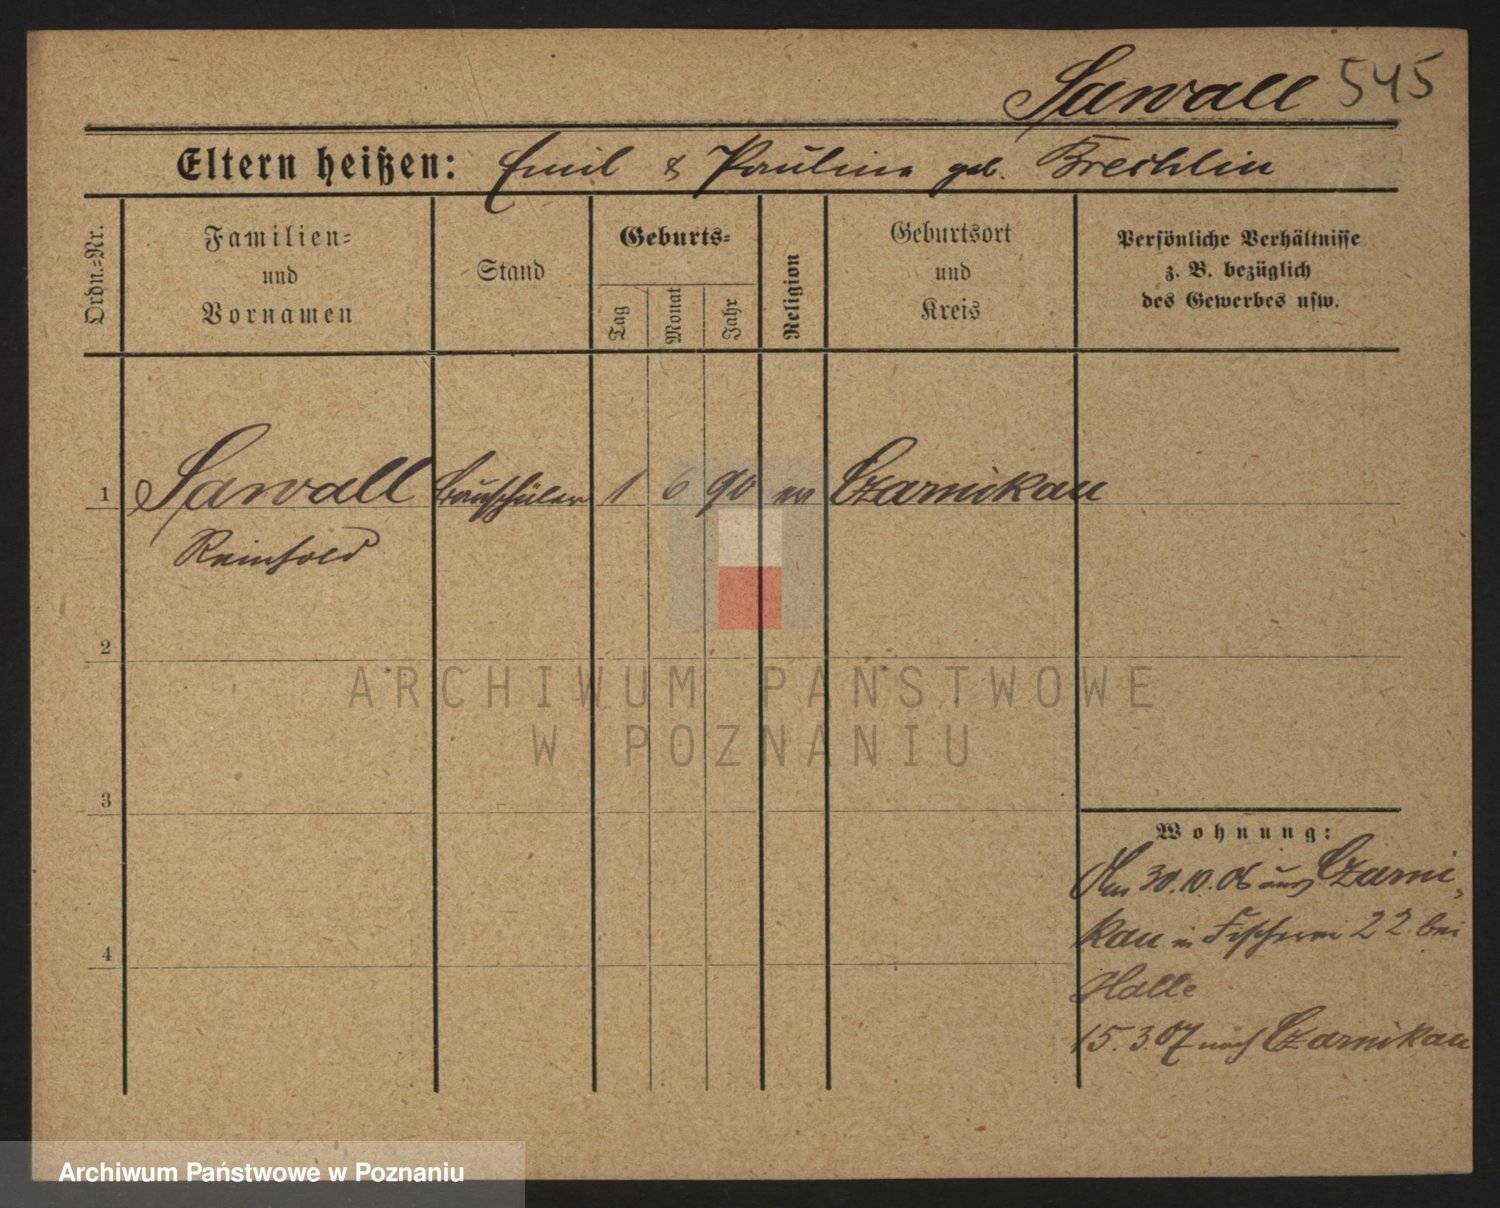 Sawall 545
Eltern heißen: Emil & Pauline geb. Brechlin
Ordn.-Nr.
Familien-
und
Vornamen
Stand
Geburts-
Tag
Monat
Jahr
Religion
Geburtsort
und
Kreis
Persönliche Verhältnisse
z. B. bezüglich
des Gewerbes usw.
1 Sawall Bauschüler 1 6 90 ev Czarnikau
Reinhold
2
3
4
Wohnung:
Am 30.10.06 aus Czarni-
kau in Fischerei 22 bei
Halle
15.3.07 nach Czarnikau
ARCHIWUM PAŃSTWOWE
W POZNANIU
Archiwum Państwowe w Poznaniu